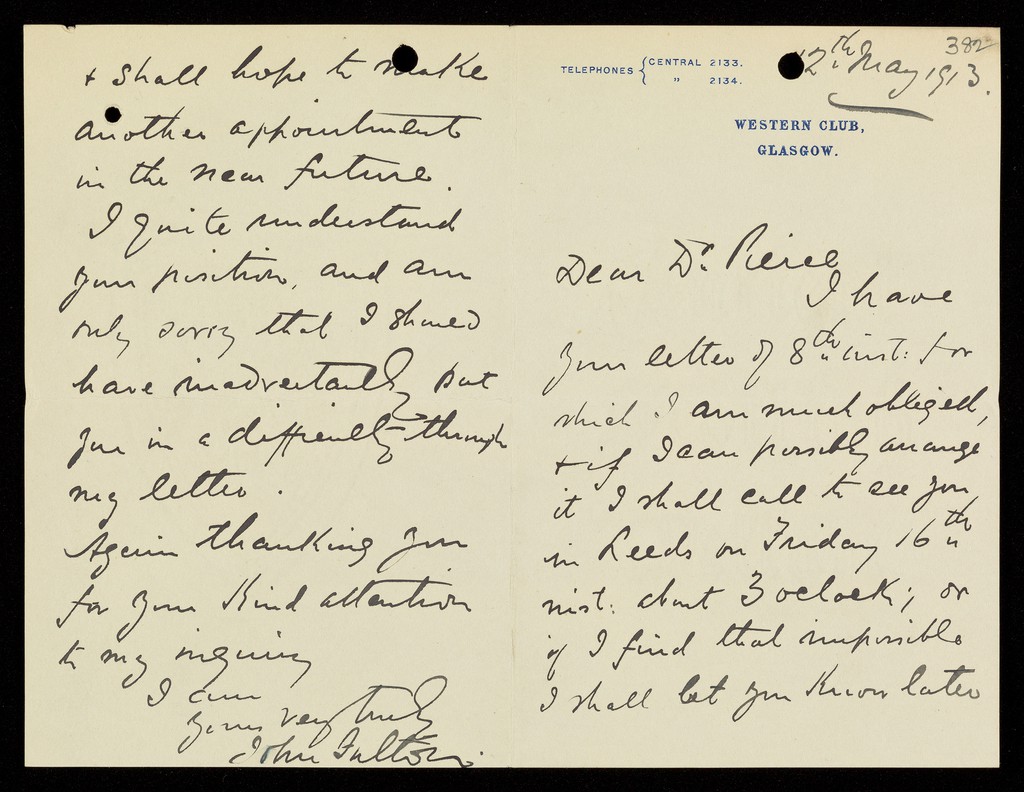 382
12th May 1913.
TELEPHONES { CENTRAL 2133.
" 2134.
WESTERN CLUB,
GLASGOW.
Dear Dr. Pierce
I have
your letter of 8th inst: for
which I am much obliged,
& if I can possibly arrange
it I shall call to see you
in Leeds on Friday 16th
inst: about 3 oclock; or
if I find that impossible
I shall let you know later
& shall hope to make
another appointment
in the near future.
I quite understand
your position, and am
only sorry that I should
have inadvertantly put
you in a difficulty through
my letter.
Again thanking you
for your kind attention
to my inquiry
I am
yours very truly
John Fulton.